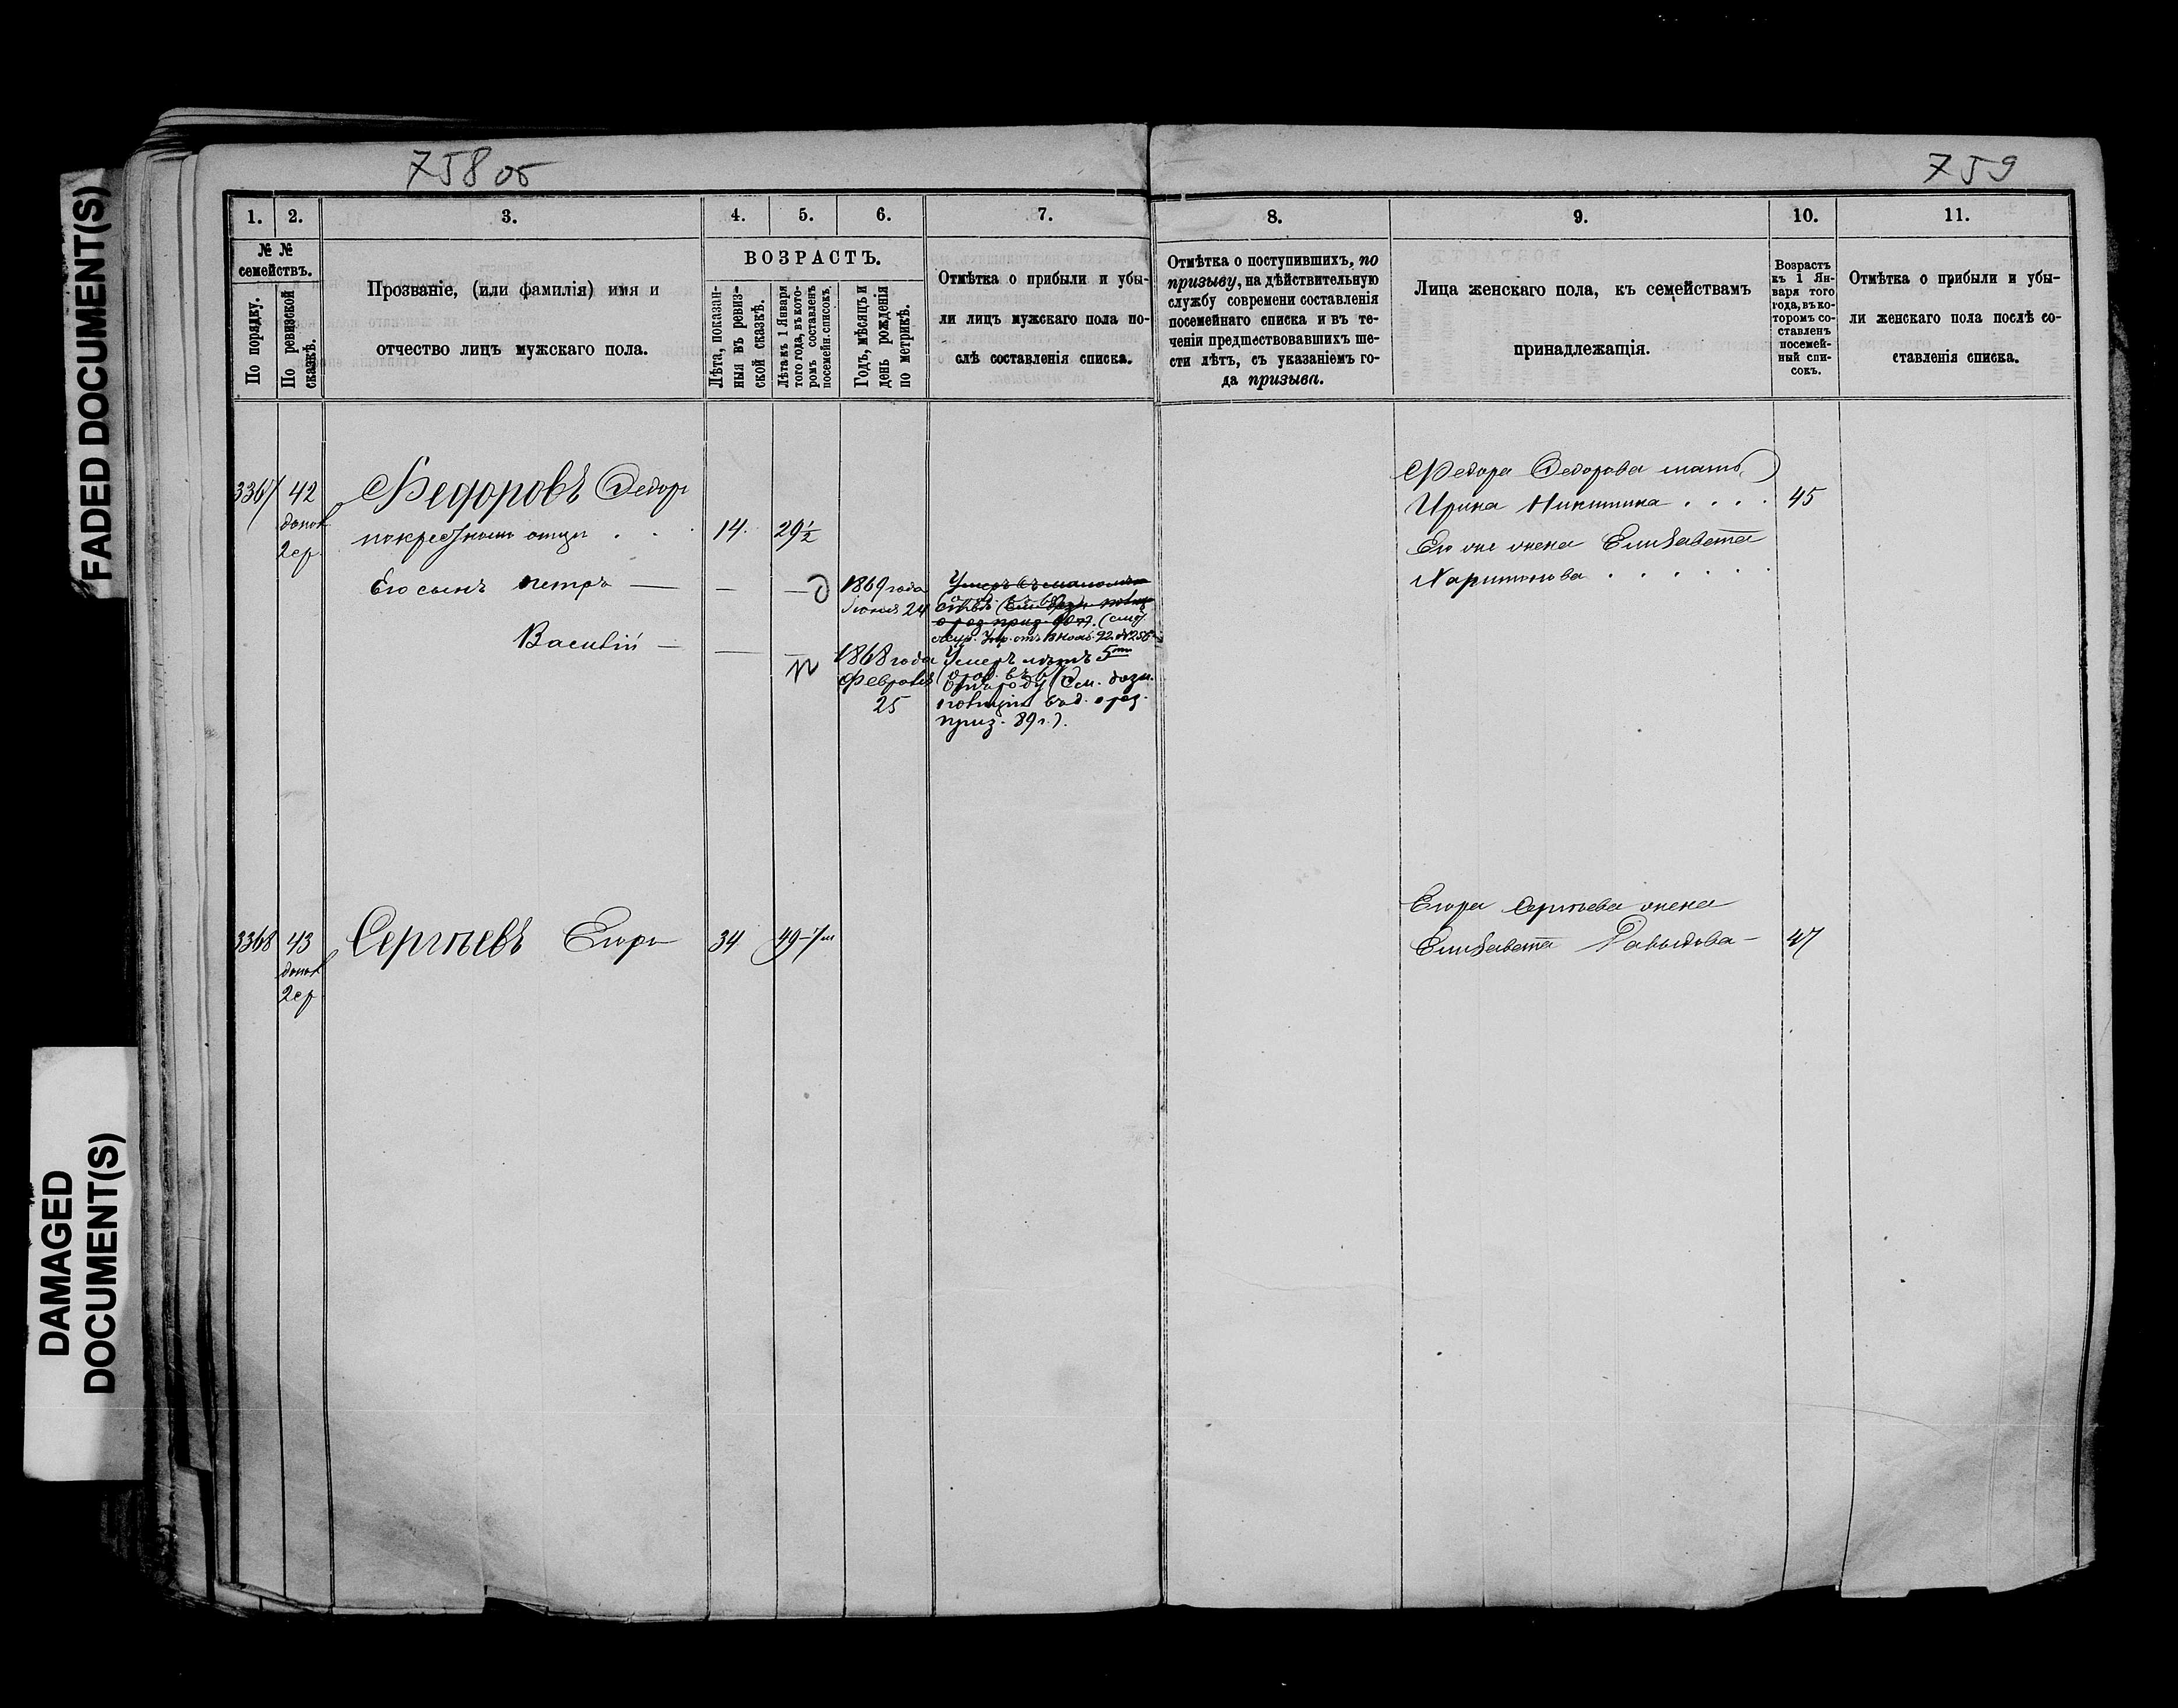 FADED DOCUMENT(S)
DAMAGED
DOCUMENT(S)
758 об
759
1.
2.
3.
4.
5.
6.
7.
8.
9.
10.
11.
№ №
семействъ.
По порядку.
По ревизской
сказкѣ.
Прозваніе, (или фамилія) имя и
отчество лицъ мужскаго пола.
ВОЗРАСТЪ.
Лѣта, показан-
ныя въ ревиз-
ской сказкѣ.
Лѣта къ 1 Января
того года, въ кото-
ромъ составленъ
посемейн. списокъ.
Годъ, мѣсяцъ и
день рожденія
по метрикѣ.
Отмѣтка о прибыли и убы-
ли лицъ мужскаго пола по-
слѣ составленія списка.
Отмѣтка о поступившихъ, по
призыву, на дѣйствительную
службу современи составленія
посемейнаго списка и въ те-
ченіи предшествовавшихъ ше-
сти лѣтъ, съ указаніемъ го-
да призыва.
Лица женскаго пола, къ семействамъ
принадлежащія.
Возрастъ
къ 1 Ян-
варя того
года, въ ко-
торомъ со-
ставленъ
посемей-
ный спи-
сокъ.
Отмѣтка о прибыли и убы-
ли женскаго пола послѣ со-
ставленія списка.
3367 42 Федоровъ Федоръ
допол
2 ср.
покрестному отцу . . 14. 29½
Его сынъ Петръ — — — 1869 года
Іюня 24
Василій — — — 1868 года
Февраля
25
Умеръ
(см.
Умеръ лѣтъ 5ти
(см. дозн.
полиціи
приз. 89 г.).
Федора Федорова мать
Ирина Никитина . . . . 45
Его же жена Елизавета
Харитонова . . . . . .
3368 43 Сергѣевъ Егоръ 34 49
допол
2 ср.
Егора Сергѣева жена
Елизавета Давыдова — 47